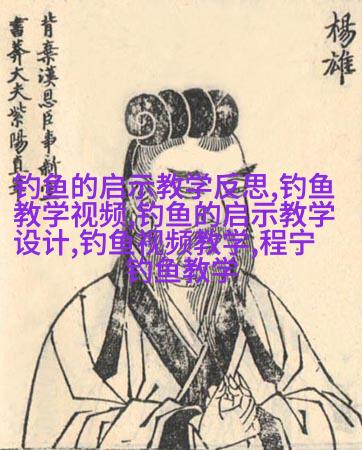 楊雄
背棄漢恩臣事新
書莽大夫紫陽直
钓鱼的启示教学反思,钓鱼
教学视频,钓鱼的启示教学
设计,钓鱼视频教学,程宁
钓鱼教学